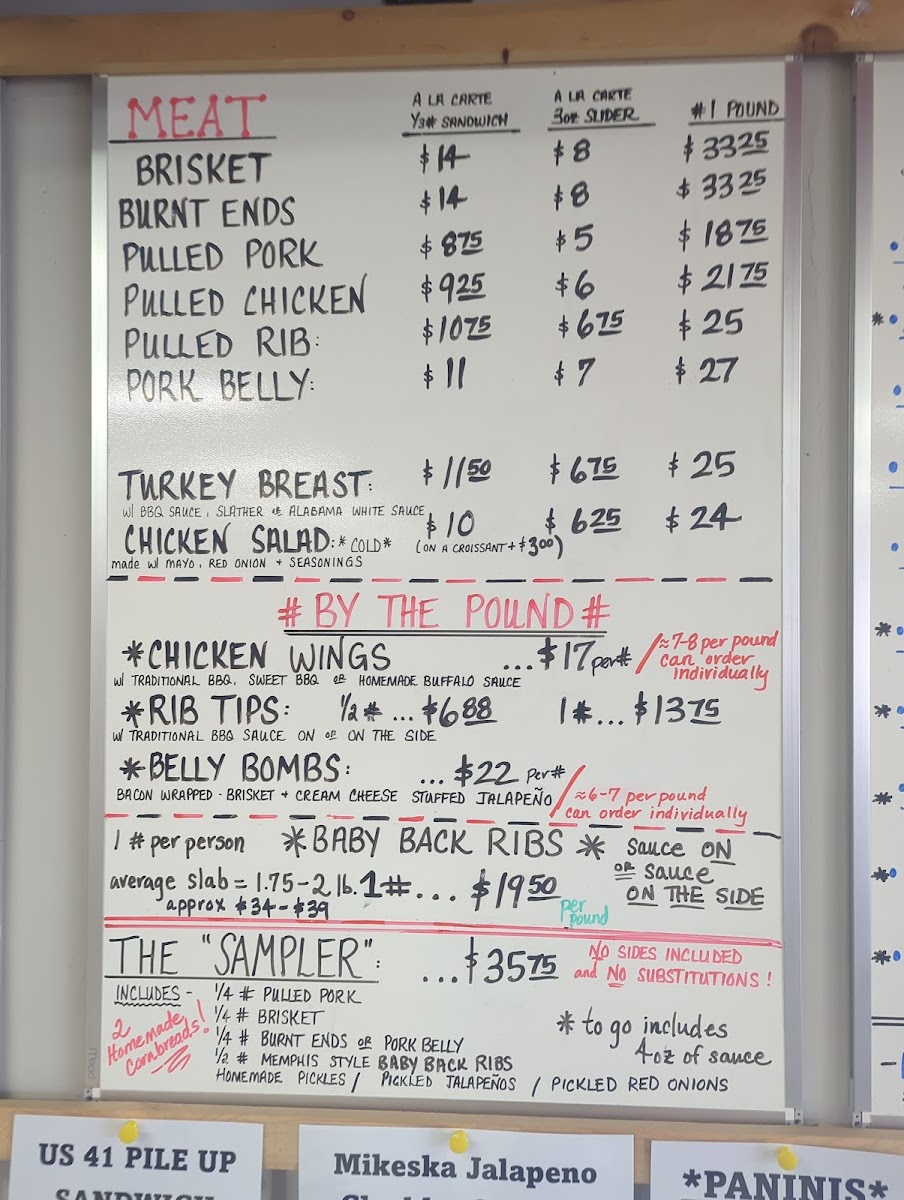 MEAT
A LA CARTE
1/3# SANDWICH
A LA CARTE
3oz SLIDER
#1 POUND
BRISKET $14 $8 $33 25
BURNT ENDS $14 $8 $33 25
PULLED PORK $8 75 $5 $18 75
PULLED CHICKEN $9 25 $6 $21 75
PULLED RIB: $10 75 $6 75 $25
PORK BELLY: $11 $7 $27
TURKEY BREAST: $11 50 $6 75 $25
W/ BBQ SAUCE, SLATHER OR ALABAMA WHITE SAUCE
CHICKEN SALAD: *COLD* $10 $6 25 $24
(ON A CROISSANT + $3.00)
made w/ MAYO, RED ONION + SEASONINGS
# BY THE POUND #
*CHICKEN WINGS ...$17 per#
≈7-8 per pound
can order
individually
W/ TRADITIONAL BBQ, SWEET BBQ OR HOMEMADE BUFFALO SAUCE
*RIB TIPS: 1/2# ... $6 88 1#... $13 75
W/ TRADITIONAL BBQ SAUCE ON OR ON THE SIDE
*BELLY BOMBS: ... $22 Per#
BACON WRAPPED - BRISKET + CREAM CHEESE STUFFED JALAPEÑO
≈6-7 per pound
can order individually
1 # per person *BABY BACK RIBS*
average slab = 1.75-2 lb. 1#... $19 50
per
pound
approx $34-$39
Sauce ON
OR Sauce
ON THE SIDE
THE "SAMPLER": ...$35 75
NO SIDES INCLUDED
and NO SUBSTITUTIONS!
INCLUDES - 1/4 # PULLED PORK
1/4 # BRISKET
1/4 # BURNT ENDS OR PORK BELLY
1/2 # MEMPHIS STYLE BABY BACK RIBS
HOMEMADE PICKLES / PICKLED JALAPEÑOS / PICKLED RED ONIONS
2
Homemade
Cornbreads!
* to go includes
4oz of sauce
US 41 PILE UP
SANDWICH
Mikeska Jalapeno
*PANINIS*